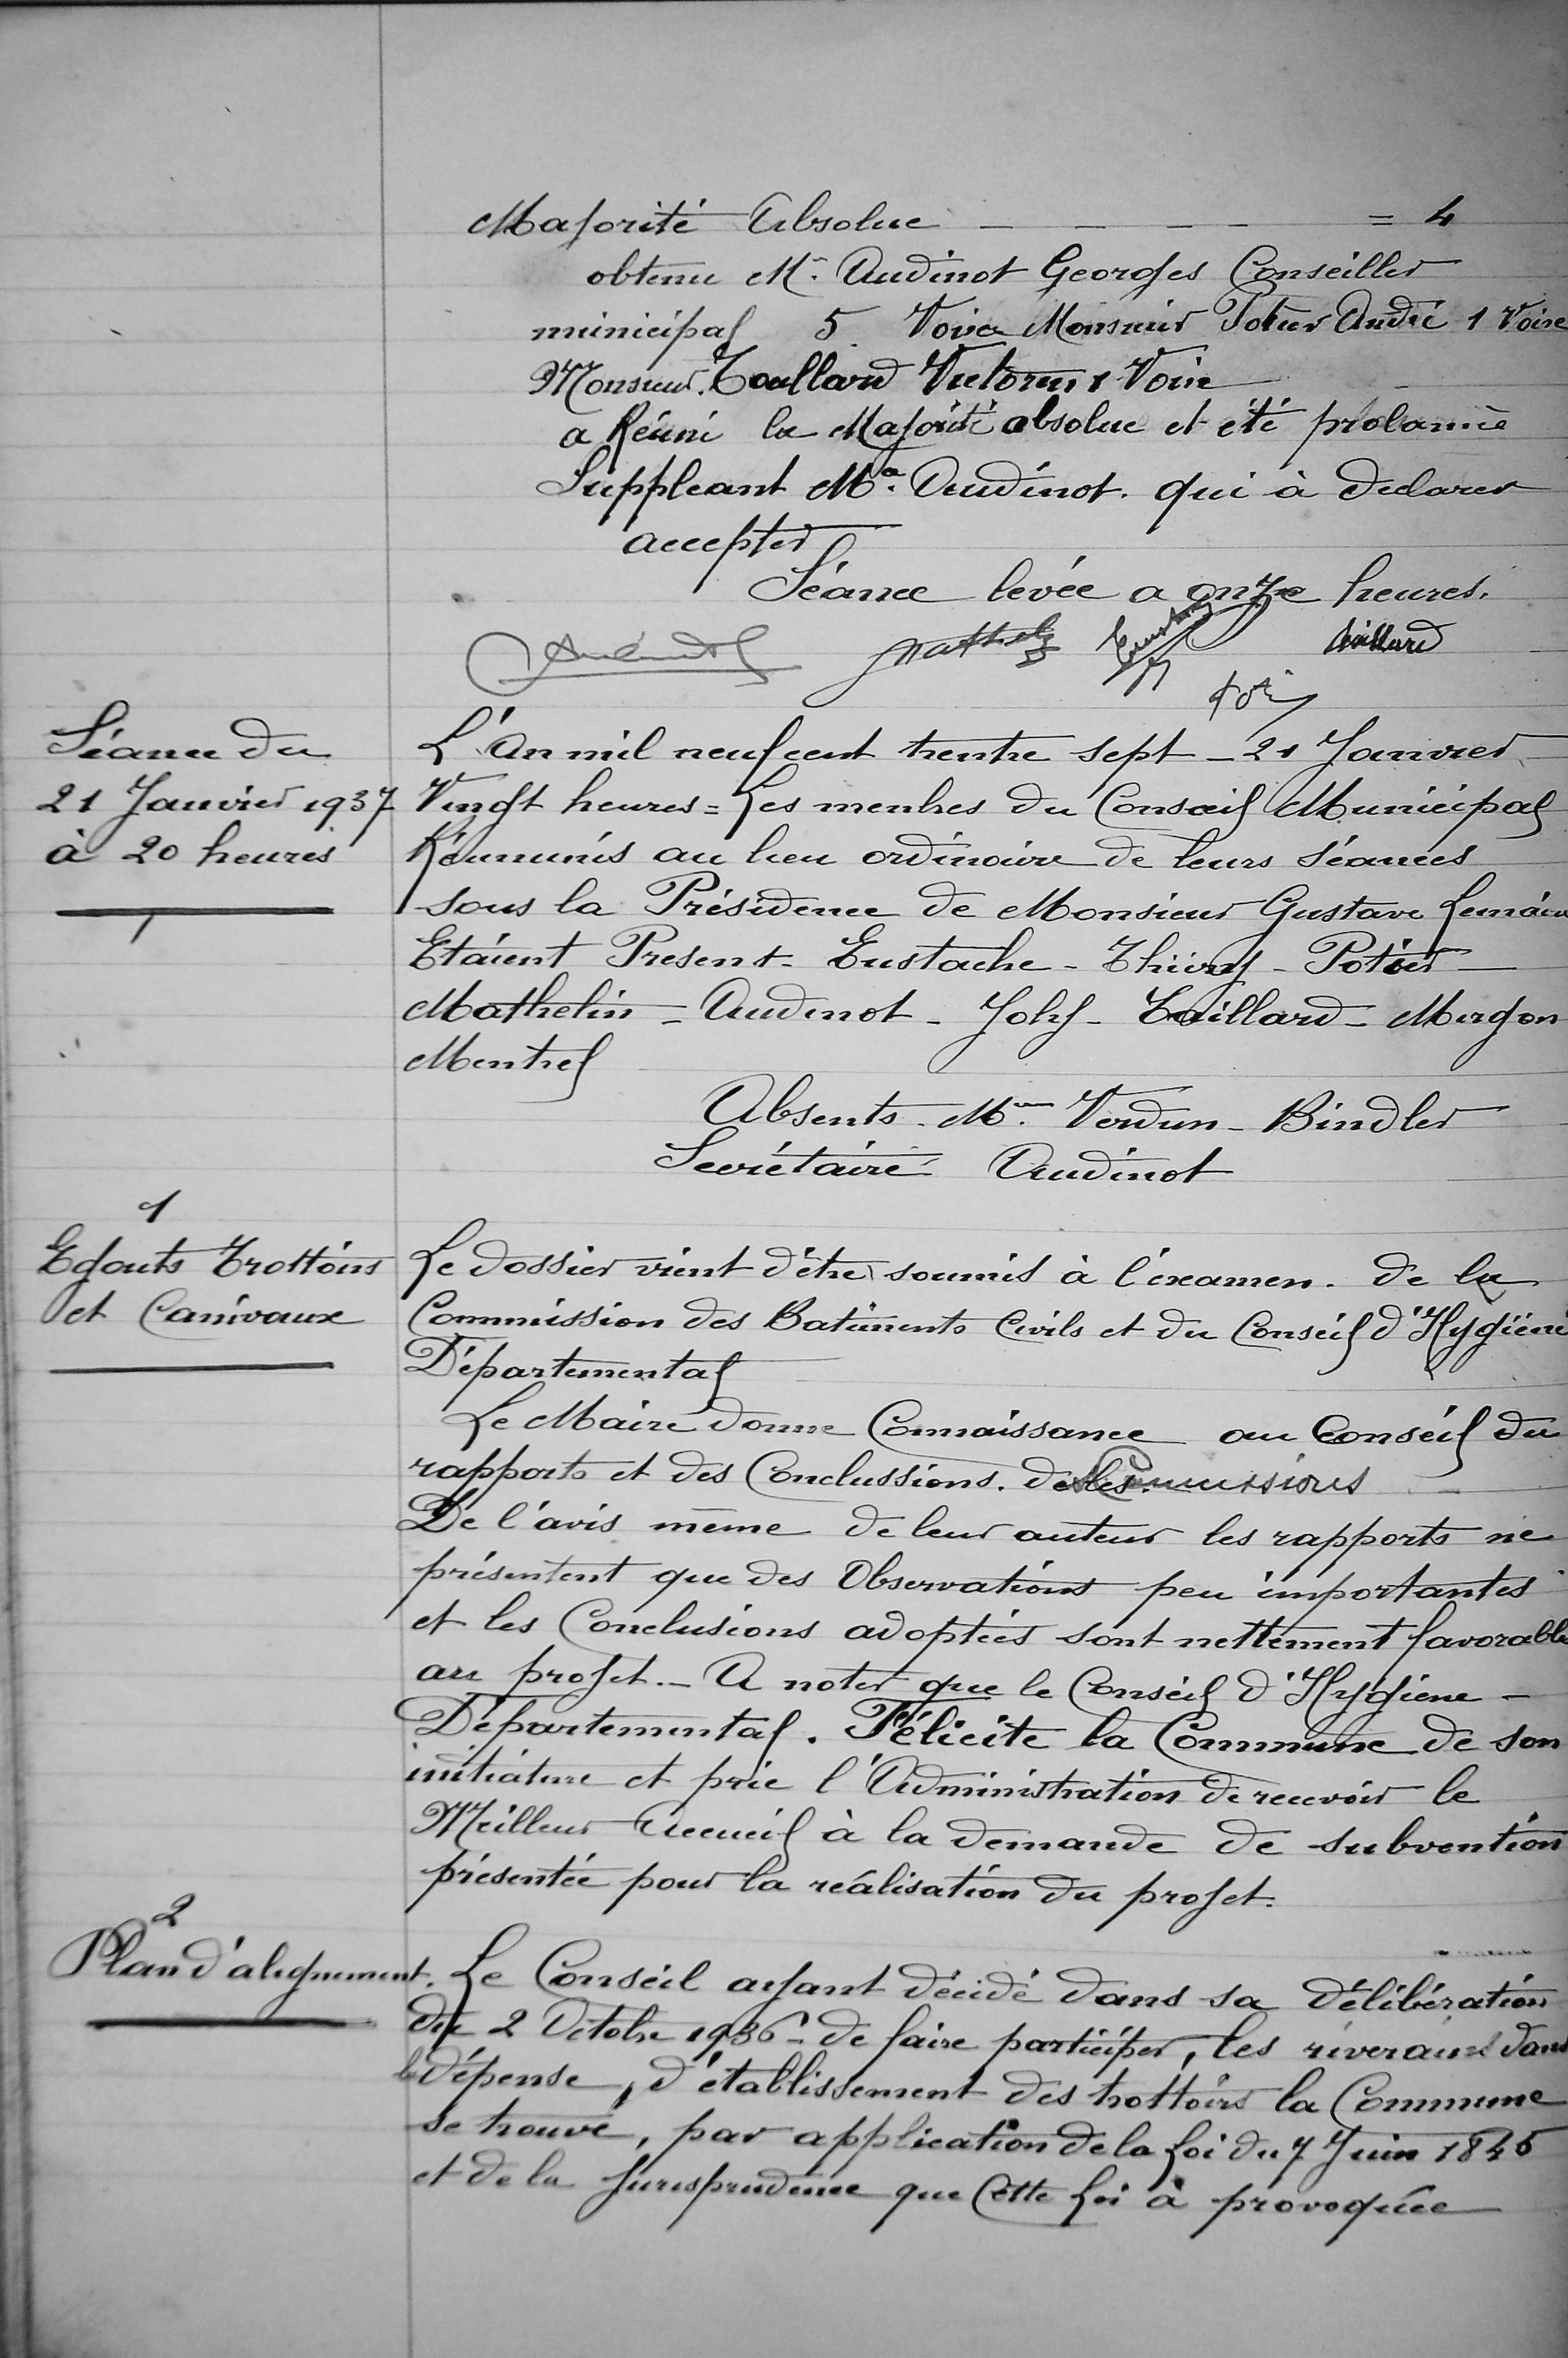 Majorité Absolue — — — — = 4
obtenu Mr. Audinot Georges Conseiller
municipal 5 Voix Monsieur Potier André 1 Voix
Monsieur Taillard Victorin 1 Voix
a Réuni la Majorité absolue et été prolamé
Suppleant Mr. Audinot. qui à declarer
accepter
Séance levée a onze heures.
Audinot Taillard
Séance du
21 Janvier 1937
à 20 heures
L'An mil neuf cent trente sept – 21 Janvier
Vingt heures = Les menbres du Conseil Municipal
Réunmis au lieu ordinaire de leurs séances
sous la Présidence de Monsieur Gustave Lemaire
Etaient Present – Eustache – Thiery – Potier –
Mathelin – Audinot – Joly – Taillard – Mergon
Mentrel
Absents – Mrs. Verdun – Bindler
Secrétaire Audinot
1
Egouts Trottoirs
et Caniveaux
Le dossier vient d'être soumis à l'examen. de la
Commission des Batiments Civils et du Conseil d'Hygiéne
Départemental
Le Maire donne Connaissance au Conseil du
rapports et des Conclussions. des Commissions
De l'avis même de leur auteur les rapports ne
présentent que des Observations peu importantes
et les Conclusions adoptées sont nettement favorable
au projet. – A noter que le Conseil d'Hygiene –
Départemental. Félicite la Commune de son
initiative et prie l'Administration de recevoir le
Meilleur Accueil à la demande de subvention
présentée pour la réalisation du projet.
2
Plan d'alignement.
Le Conseil ayant décidé dans sa délibération
du 2 Octobre 1936 – de faire participer, les riverains dans
la dépense, d'établissement des trottoirs la Commune
se trouve, par application de la Loi du 7 Juin 1845
et de la Jurisprudence que Cette Loi à provoquée